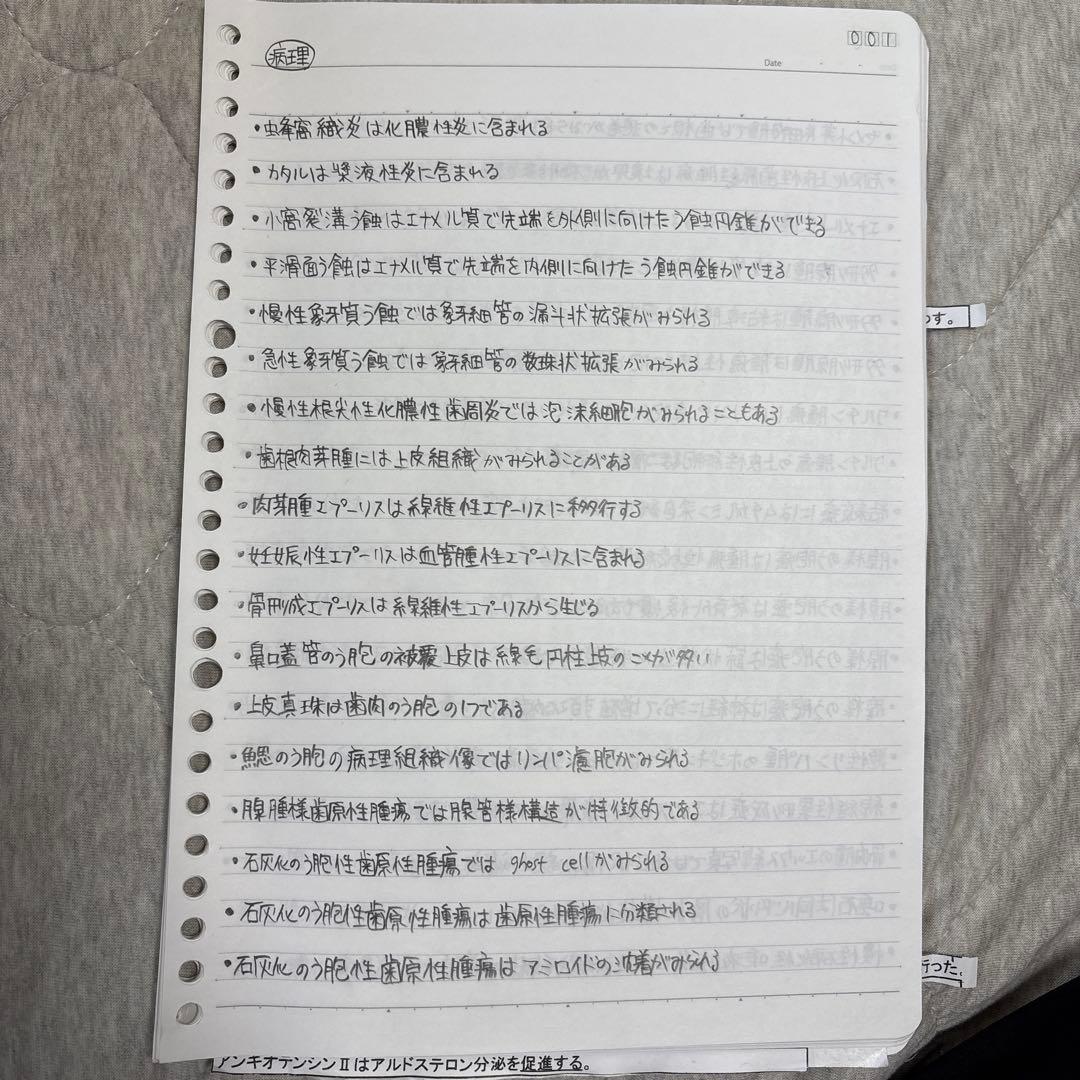 001
病理
Date
・蜂窩織炎は化膿性炎に含まれる
・カタルは漿液性炎に含まれる
・小窩裂溝う蝕はエナメル質で先端を外側に向けたう蝕円錐ができる
・平滑面う蝕はエナメル質で先端を内側に向けたう蝕円錐ができる
・慢性象牙質う蝕では象牙細管の漏斗状拡張がみられる
・急性象牙質う蝕では象牙細管の数珠状拡張がみられる
・慢性根尖性化膿性歯周炎では泡沫細胞がみられることもある
・歯根肉芽腫には上皮組織がみられることがある
・肉芽腫エプーリスは線維性エプーリスに移行する
・妊娠性エプーリスは血管腫性エプーリスに含まれる
・骨形成エプーリスは線維性エプーリスから生じる
・鼻口蓋管のう胞の被覆上皮は線毛円柱上皮のことが多い
・上皮真珠は歯肉のう胞の1つである
・鰓のう胞の病理組織像ではリンパ濾胞がみられる
・腺腫様歯原性腫瘍では腺管様構造が特徴的である
・石灰化のう胞性歯原性腫瘍では ghost cellがみられる
・石灰化のう胞性歯原性腫瘍は歯原性腫瘍に分類される
・石灰化のう胞性歯原性腫瘍はアミロイドの沈着がみられる
す。
行った。
アンギオテンシンⅡはアルドステロン分泌を促進する。